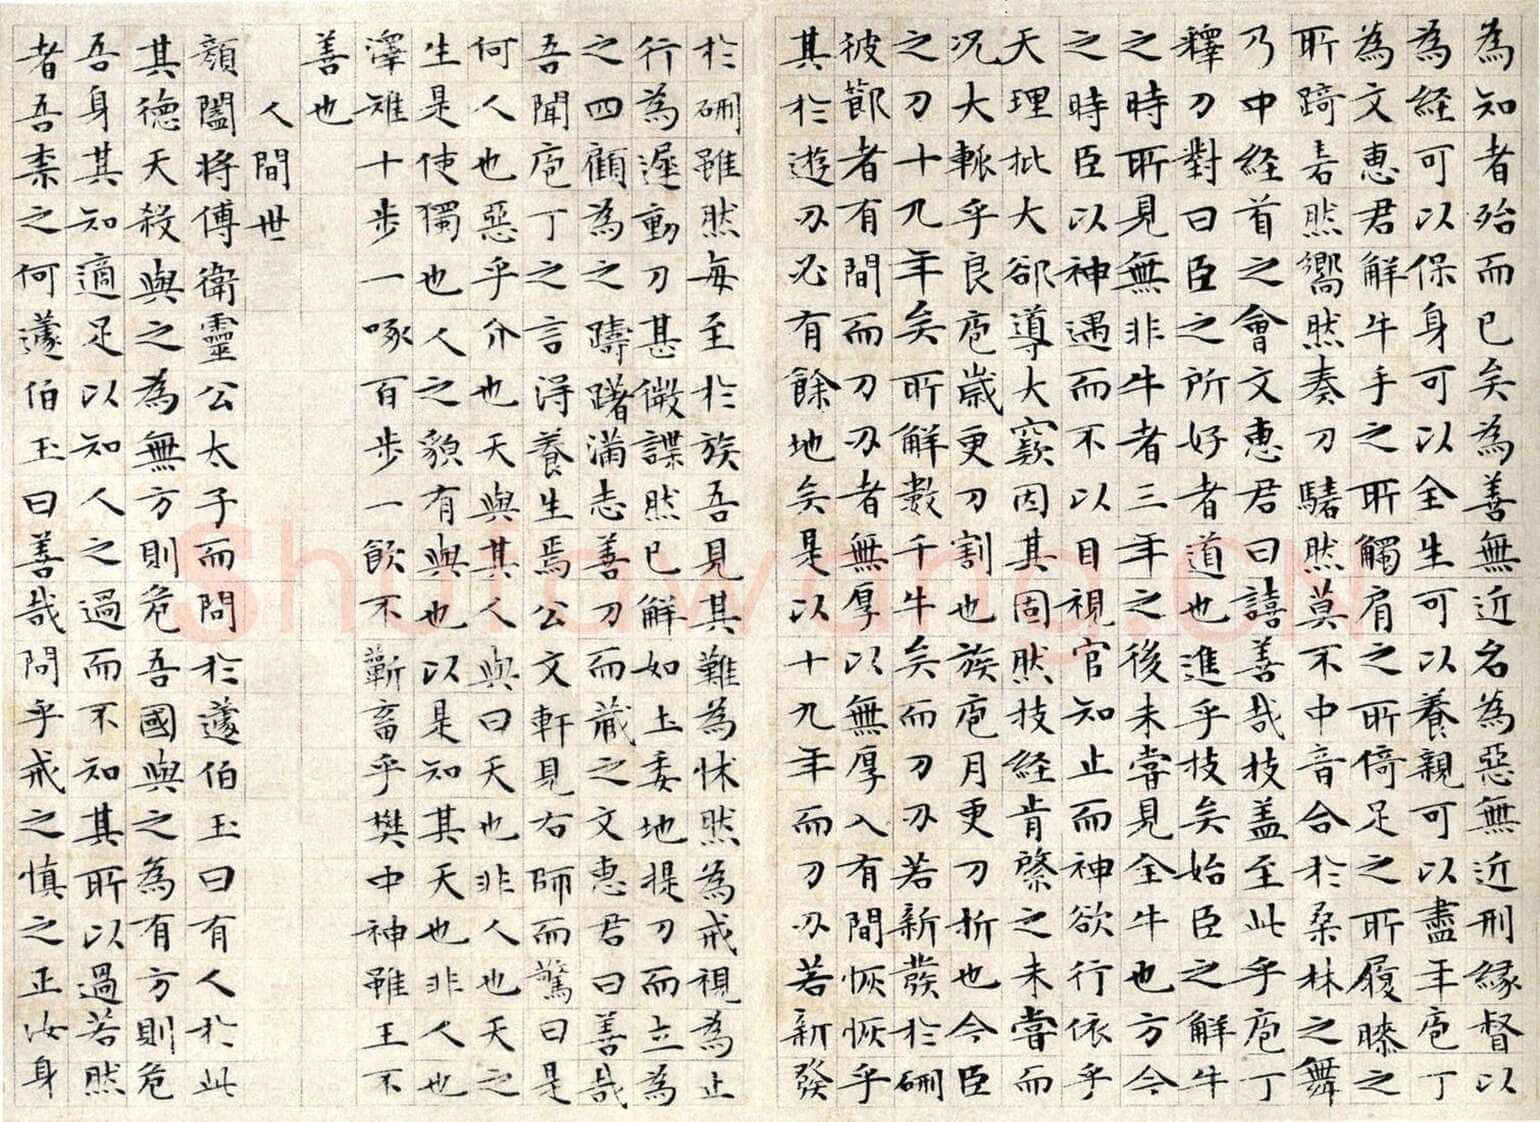 為知者殆而已矣為善無近名為惡無近刑緣督以
為経可以保身可以全生可以養親可以盡年庖丁
為文惠君解牛手之所觸肩之所倚足之所履膝之
所踦砉然嚮然奏刀騞然莫不中音合於桑林之舞
乃中経首之會文惠君曰譆善哉技盖至此乎庖丁
釋刀對曰臣之所好者道也進乎技矣始臣之解牛
之時所見無非牛者三年之後未嘗見全牛也方今
之時臣以神遇而不以目視官知止而神欲行依乎
天理批大郤導大窾因其固然技経肯綮之未嘗而
况大軱乎良庖歲更刀割也族庖月更刀折也今臣
之刀十九年矣所解數千牛矣而刀刃若新發於硎
彼節者有間而刀刃者無厚以無厚入有間恢恢乎
其於遊刃必有餘地矣是以十九年而刀刃若新發
於硎雖然每至於族吾見其難為怵然為戒視為止
行為遲動刀甚微諜然已解如土委地提刀而立為
之四顧為之躊躇滿志善刀而藏之文惠君曰善哉
吾聞庖丁之言得養生焉公文軒見右師而驚曰是
何人也惡乎介也天與其人與曰天也非人也天之
生是使獨也人之貌有與也以是知其天也非人也
澤雉十步一啄百步一飲不蘄畜乎樊中神雖王不
善也
人間世
顏闔將傅衛靈公太子而問於蘧伯玉曰有人於此
其德天殺與之為無方則危吾國與之為有方則危
吾身其知適足以知人之過而不知其所以過若然
者吾柰之何蘧伯玉曰善哉問乎戒之慎之正汝身
Shufawang.CN